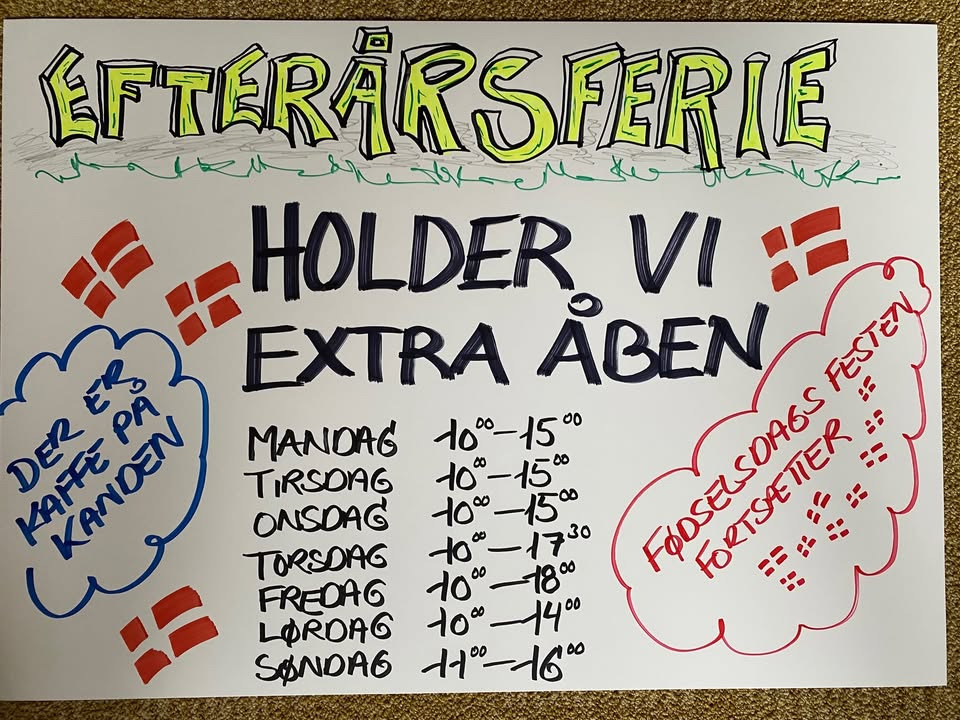 EFTERÅRSFERIE
HOLDER VI
EXTRA ÅBEN
DER ER
KAFFE PÅ
KANDEN
MANDAG 10⁰⁰-15⁰⁰
TIRSDAG 10⁰⁰-15⁰⁰
ONSDAG 10⁰⁰-15⁰⁰
TORSDAG 10⁰⁰-17³⁰
FREDAG 10⁰⁰-18⁰⁰
LØRDAG 10⁰⁰-14⁰⁰
SØNDAG 11⁰⁰-16⁰⁰
FØDSELSDAGS FESTEN
FORTSÆTTER